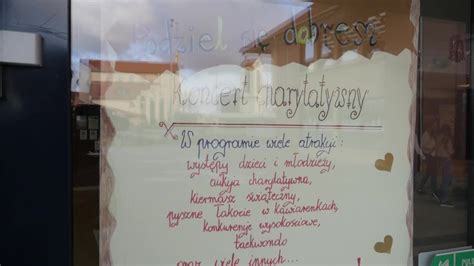 Podziel się dobrem
Koncert charytatywny
W programie wiele atrakcji:
występy dzieci i młodzieży,
aukcja charytatywna,
kiermasz świąteczny,
pyszne łakocie w kawiarenkach,
konkurencje wysokościowe,
taekwondo
oraz wiele innych...